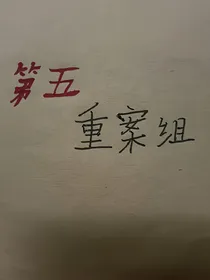 第五
重案组